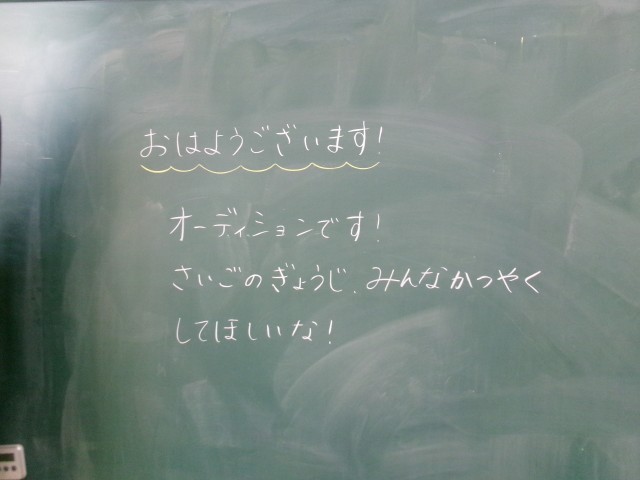 おはようございます!
オーディションです!
さいごのぎょうじ、みんなかつやく
してほしいな!